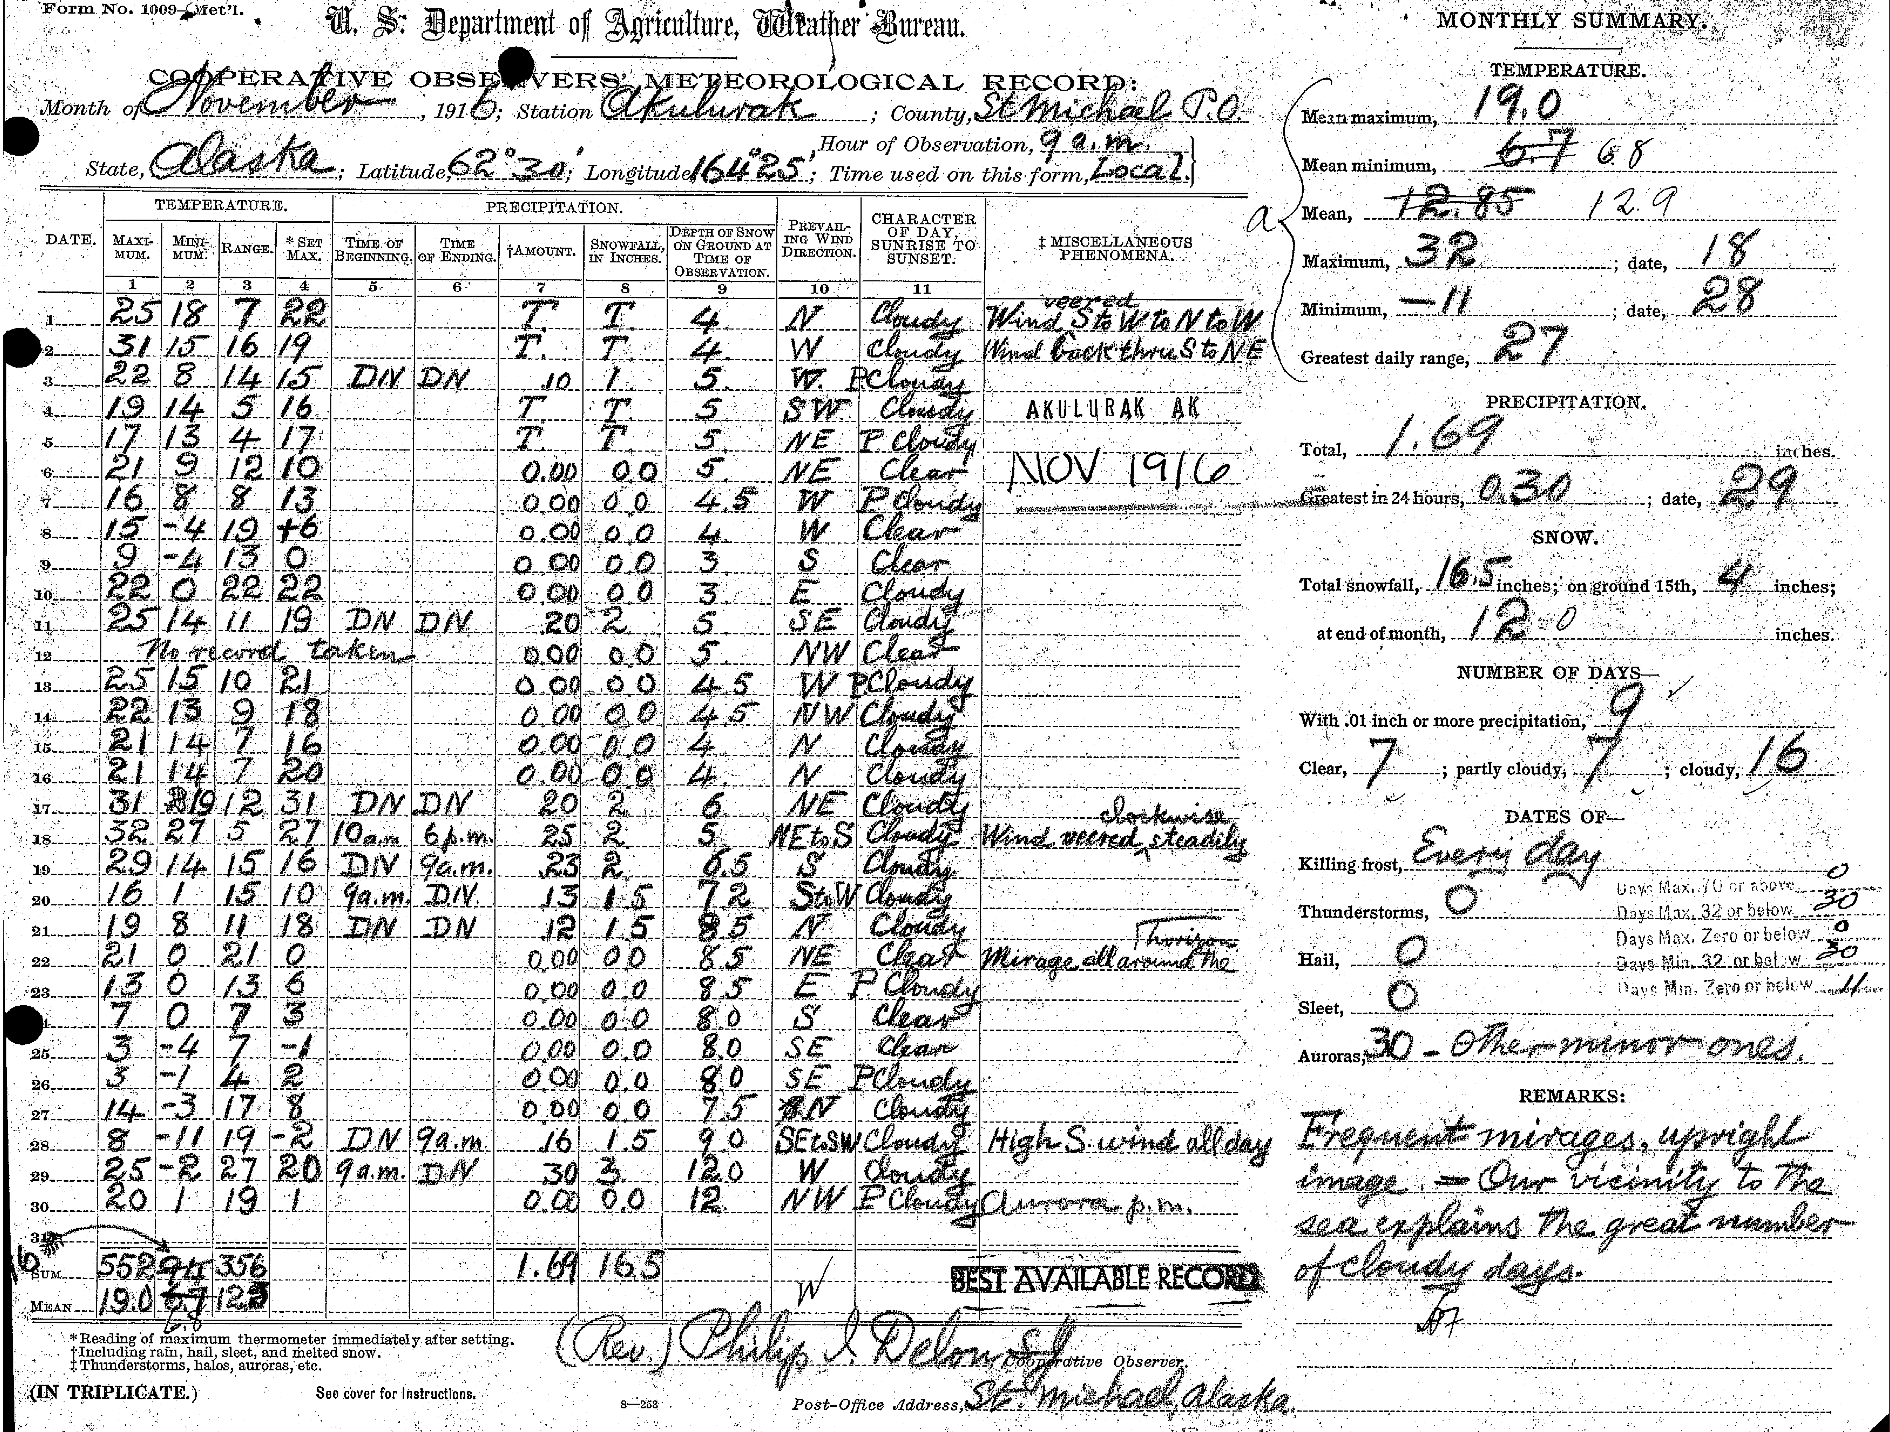 Form No. 1009—Met'l.
U. S. Department of Agriculture, Weather Bureau.
COOPERATIVE OBSERVERS' METEOROLOGICAL RECORD:
Month of November, 1916; Station Akulurak; County, St Michael P.O.
State, Alaska; Latitude, 62°30'; Longitude 164°25'; Hour of Observation, 9 a.m. Time used on this form, Local.
DATE. TEMPERATURE. PRECIPITATION. PREVAILING WIND DIRECTION. CHARACTER OF DAY, SUNRISE TO SUNSET. ‡ MISCELLANEOUS PHENOMENA.
MAXIMUM. MINIMUM. RANGE. * SET MAX. TIME OF BEGINNING. TIME OF ENDING. †AMOUNT. SNOWFALL, IN INCHES. DEPTH OF SNOW ON GROUND AT TIME OF OBSERVATION.
1 2 3 4 5 6 7 8 9 10 11
1 25 18 7 22 T. T. 4 N Cloudy Wind veered S to W to N to W
2 31 15 16 19 T. T. 4 W Cloudy Wind back thru S to NE
3 22 8 14 15 DN DN .10 1 5 W. P Cloudy
4 19 14 5 16 T T. 5 SW Cloudy AKULURAK AK
5 17 13 4 17 T. T. 5 NE P Cloudy
6 21 9 12 10 0.00 00 5 NE Clear NOV 1916
7 16 8 8 13 0.00 0.0 4.5 W P Cloudy
8 15 -4 19 +6 0.00 0.0 4 W Clear
9 9 -4 13 0 0.00 0.0 3 S Clear
10 22 0 22 22 0.00 0.0 3 E Cloudy
11 25 14 11 19 DN DN .20 2 5 SE Cloudy
12 No record taken 0.00 0.0 5 NW Clear
13 25 15 10 21 0.00 0.0 4.5 W P Cloudy
14 22 13 9 18 0.00 0.0 4.5 NW Cloudy
15 21 14 7 16 0.00 0.0 4 N Cloudy
16 21 14 7 20 0.00 0.0 4 N Cloudy
17 31 19 12 31 DN DN 20 2 6 NE Cloudy
18 32 27 5 27 10 a.m 6 p.m. 25 2 5 NE to S Cloudy Wind veered clockwise steadily
19 29 14 15 16 DN 9 a.m. .23 2 6.5 S Cloudy
20 16 1 15 10 9 a.m. DN. .13 1.5 7.2 S to W Cloudy
21 19 8 11 18 DN DN .12 1.5 8.5 N Cloudy
22 21 0 21 0 0.00 0.0 8.5 NE Clear Mirage all around the horizon
23 13 0 13 6 0.00 0.0 8.5 E P Cloudy
7 0 7 3 0.00 0.0 8.0 S Clear
25 3 -4 7 -1 0.00 0.0 8.0 SE Clear
26 3 -1 4 2 0.00 0.0 8.0 SE P Cloudy
27 14 -3 17 8 0.00 0.0 7.5 N Cloudy
28 8 -11 19 -2 DN 9 a.m .16 1.5 9.0 SE to SW Cloudy High S. wind all day
29 25 -2 27 20 9 a.m. DN 30 3. 12.0 W Cloudy
30 20 1 19 1 0.00 0.0 12 NW P Cloudy Aurora p.m.
31
SUM 552 356 1.69 16.5
MEAN 19.0 6.7 6.8 W
BEST AVAILABLE RECORD
*Reading of maximum thermometer immediately after setting.
†Including rain, hail, sleet, and melted snow.
‡Thunderstorms, halos, auroras, etc.
(Rev.) Philip I. Delon, S.J. Cooperative Observer.
(IN TRIPLICATE.) See cover for instructions. 8—253 Post-Office Address, St. Michael, Alaska.
MONTHLY SUMMARY.
TEMPERATURE.
a
Mean maximum, 19.0
Mean minimum, 6.7 6.8
Mean, 12.85 12.9
Maximum, 32; date, 18
Minimum, —11; date, 28
Greatest daily range, 27
PRECIPITATION.
Total, 1.69 inches.
Greatest in 24 hours, 0.30; date, 29
SNOW.
Total snowfall, 16.5 inches; on ground 15th, 4 inches;
at end of month, 12.0 inches.
NUMBER OF DAYS—
With .01 inch or more precipitation, 9
Clear, 7; partly cloudy, 7; cloudy, 16
DATES OF—
Killing frost, Every day
Days Max. 70 or above 0
Thunderstorms, 0
Days Max. 32 or below 30
Days Max. Zero or below 0
Hail, 0
Days Min. 32 or below 30
Days Min. Zero or below 11
Sleet, 0
Auroras, 30 - Other minor ones.
REMARKS:
Frequent mirages, upright
image. = Our vicinity to the
sea explains the great number
of cloudy days.